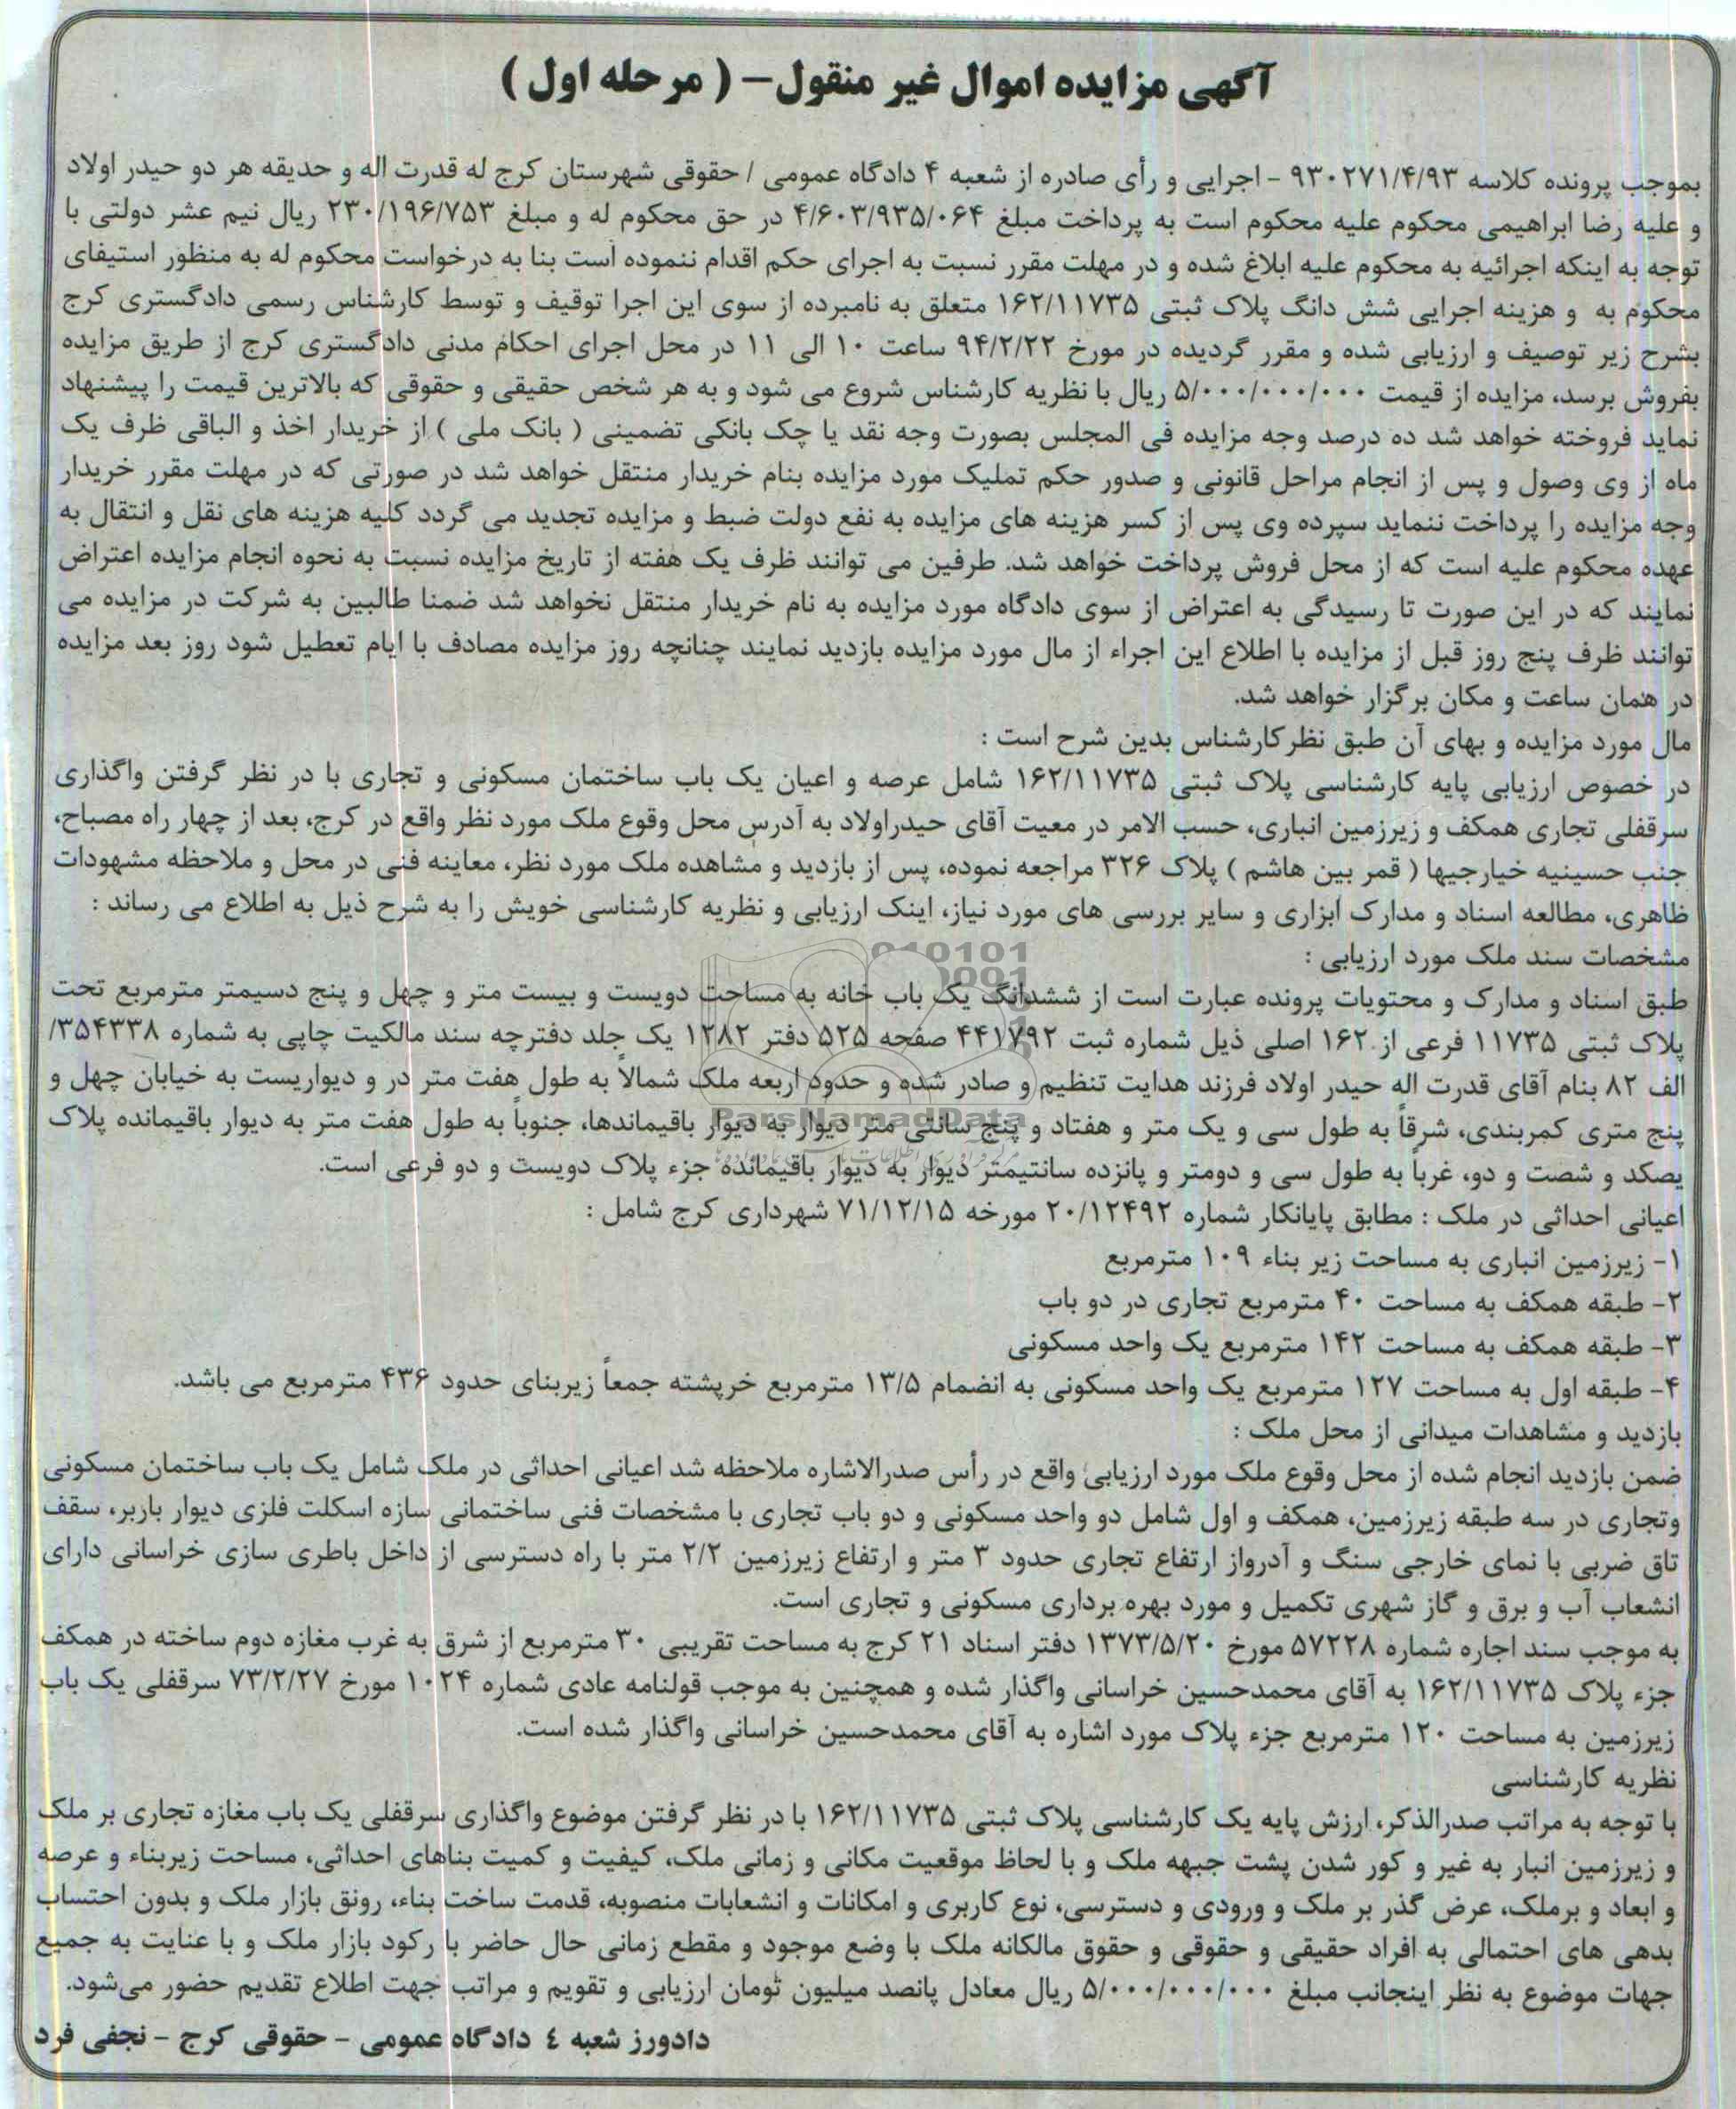 آگهی مزایده اموال غیر منقول- ( مرحله اول )
بموجب پرونده کلاسه ۹۳۰۲۷۱/۴/۹۳ - اجرایی و رأی صادره از شعبه ۴ دادگاه عمومی / حقوقی شهرستان کرج له قدرت اله و حدیقه هر دو حیدر اولاد
و علیه رضا ابراهیمی محکوم علیه محکوم است به پرداخت مبلغ ۴/۶۰۳/۹۳۵/۰۶۴ در حق محکوم له و مبلغ ۲۳۰/۱۹۶/۷۵۳ ریال نیم عشر دولتی با
توجه به اینکه اجرائیه به محکوم علیه ابلاغ شده و در مهلت مقرر نسبت به اجرای حکم اقدام ننموده است بنا به درخواست محکوم له به منظور استیفای
محکوم به و هزینه اجرایی شش دانگ پلاک ثبتی ۱۶۲/۱۱۷۳۵ متعلق به نامبرده از سوی این اجرا توقیف و توسط کارشناس رسمی دادگستری کرج
بشرح زیر توصیف و ارزیابی شده و مقرر گردیده در مورخ ۹۴/۲/۲۲ ساعت ۱۰ الی ۱۱ در محل اجرای احکام مدنی دادگستری کرج از طریق مزایده
بفروش برسد، مزایده از قیمت ۵/۰۰۰/۰۰۰/۰۰۰ ریال با نظریه کارشناس شروع می شود و به هر شخص حقیقی و حقوقی که بالاترین قیمت را پیشنهاد
نماید فروخته خواهد شد ده درصد وجه مزایده فی المجلس بصورت وجه نقد یا چک بانکی تضمینی ( بانک ملی ) از خریدار اخذ و الباقی ظرف یک
ماه از وی وصول و پس از انجام مراحل قانونی و صدور حکم تملیک مورد مزایده بنام خریدار منتقل خواهد شد در صورتی که در مهلت مقرر خریدار
وجه مزایده را پرداخت ننماید سپرده وی پس از کسر هزینه های مزایده به نفع دولت ضبط و مزایده تجدید می گردد کلیه هزینه های نقل و انتقال به
عهده محکوم علیه است که از محل فروش پرداخت خواهد شد. طرفین می توانند ظرف یک هفته از تاریخ مزایده نسبت به نحوه انجام مزایده اعتراض
نمایند که در این صورت تا رسیدگی به اعتراض از سوی دادگاه مورد مزایده به نام خریدار منتقل نخواهد شد ضمنا طالبین به شرکت در مزایده می
توانند ظرف پنج روز قبل از مزایده با اطلاع این اجراء از مال مورد مزایده بازدید نمایند چنانچه روز مزایده مصادف با ایام تعطیل شود روز بعد مزایده
در همان ساعت و مکان برگزار خواهد شد.
مال مورد مزایده و بهای آن طبق نظرکارشناس بدین شرح است :
در خصوص ارزیابی پایه کارشناسی پلاک ثبتی ۱۶۲/۱۱۷۳۵ شامل عرصه و اعیان یک باب ساختمان مسکونی و تجاری با در نظر گرفتن واگذاری
سرقفلی تجاری همکف و زیرزمین انباری، حسب الامر در معیت آقای حیدراولاد به آدرس محل وقوع ملک مورد نظر واقع در کرج، بعد از چهار راه مصباح،
جنب حسینیه خیارجیها ( قمر بین هاشم ) پلاک ۳۲۶ مراجعه نموده، پس از بازدید و مشاهده ملک مورد نظر، معاینه فنی در محل و ملاحظه مشهودات
ظاهری، مطالعه اسناد و مدارک ابزاری و سایر بررسی های مورد نیاز، اینک ارزیابی و نظریه کارشناسی خویش را به شرح ذیل به اطلاع می رساند :
مشخصات سند ملک مورد ارزیابی :
طبق اسناد و مدارک و محتویات پرونده عبارت است از ششدانگ یک باب خانه به مساحت دویست و بیست متر و چهل و پنج دسیمتر مترمربع تحت
پلاک ثبتی ۱۱۷۳۵ فرعی از ۱۶۲ اصلی ذیل شماره ثبت ۴۴۱۷۹۲ صفحه ۵۲۵ دفتر ۱۲۸۲ یک جلد دفترچه سند مالکیت چاپی به شماره ۳۵۴۳۳۸/
الف ۸۲ بنام آقای قدرت اله حیدر اولاد فرزند هدایت تنظیم و صادر شده و حدود اربعه ملک شمالاً به طول هفت متر در و دیواریست به خیابان چهل و
پنج متری کمربندی، شرقاً به طول سی و یک متر و هفتاد و پنج سانتی متر دیوار به دیوار باقیماندها، جنوباً به طول هفت متر به دیوار باقیمانده پلاک
یصکد و شصت و دو، غرباً به طول سی و دومتر و پانزده سانتیمتر دیوار به دیوار باقیمانده جزء پلاک دویست و دو فرعی است.
اعیانی احداثی در ملک : مطابق پایانکار شماره ۲۰/۱۲۴۹۲ مورخه ۷۱/۱۲/۱۵ شهرداری کرج شامل :
۱- زیرزمین انباری به مساحت زیر بناء ۱۰۹ مترمربع
۲- طبقه همکف به مساحت ۴۰ مترمربع تجاری در دو باب
۳- طبقه همکف به مساحت ۱۴۲ مترمربع یک واحد مسکونی
۴- طبقه اول به مساحت ۱۲۷ مترمربع یک واحد مسکونی به انضمام ۱۳/۵ مترمربع خرپشته جمعاً زیربنای حدود ۴۳۶ مترمربع می باشد.
بازدید و مشاهدات میدانی از محل ملک :
ضمن بازدید انجام شده از محل وقوع ملک مورد ارزیابی واقع در رأس صدرالاشاره ملاحظه شد اعیانی احداثی در ملک شامل یک باب ساختمان مسکونی
وتجاری در سه طبقه زیرزمین، همکف و اول شامل دو واحد مسکونی و دو باب تجاری با مشخصات فنی ساختمانی سازه اسکلت فلزی دیوار باربر، سقف
تاق ضربی با نمای خارجی سنگ و آدرواز ارتفاع تجاری حدود ۳ متر و ارتفاع زیرزمین ۲/۲ متر با راه دسترسی از داخل باطری سازی خراسانی دارای
انشعاب آب و برق و گاز شهری تکمیل و مورد بهره برداری مسکونی و تجاری است.
به موجب سند اجاره شماره ۵۷۲۲۸ مورخ ۱۳۷۳/۵/۲۰ دفتر اسناد ۲۱ کرج به مساحت تقریبی ۳۰ مترمربع از شرق به غرب مغازه دوم ساخته در همکف
جزء پلاک ۱۶۲/۱۱۷۳۵ به آقای محمدحسین خراسانی واگذار شده و همچنین به موجب قولنامه عادی شماره ۱۰۲۴ مورخ ۷۳/۲/۲۷ سرقفلی یک باب
زیرزمین به مساحت ۱۲۰ مترمربع جزء پلاک مورد اشاره به آقای محمدحسین خراسانی واگذار شده است.
نظریه کارشناسی
با توجه به مراتب صدرالذکر، ارزش پایه یک کارشناسی پلاک ثبتی ۱۶۲/۱۱۷۳۵ با در نظر گرفتن موضوع واگذاری سرقفلی یک باب مغازه تجاری بر ملک
و زیرزمین انبار به غیر و کور شدن پشت جبهه ملک و با لحاظ موقعیت مکانی و زمانی ملک، کیفیت و کمیت بناهای احداثی، مساحت زیربناء و عرصه
و ابعاد و برملک، عرض گذر بر ملک و ورودی و دسترسی، نوع کاربری و امکانات و انشعابات منصوبه، قدمت ساخت بناء، رونق بازار ملک و بدون احتساب
بدهی های احتمالی به افراد حقیقی و حقوقی و حقوق مالکانه ملک با وضع موجود و مقطع زمانی حال حاضر با رکود بازار ملک و با عنایت به جمیع
جهات موضوع به نظر اینجانب مبلغ ۵/۰۰۰/۰۰۰/۰۰۰ ریال معادل پانصد میلیون تومان ارزیابی و تقویم و مراتب جهت اطلاع تقدیم حضور می‌شود.
دادورز شعبه ٤ دادگاه عمومی - حقوقی کرج - نجفی فرد
ParsNamadData